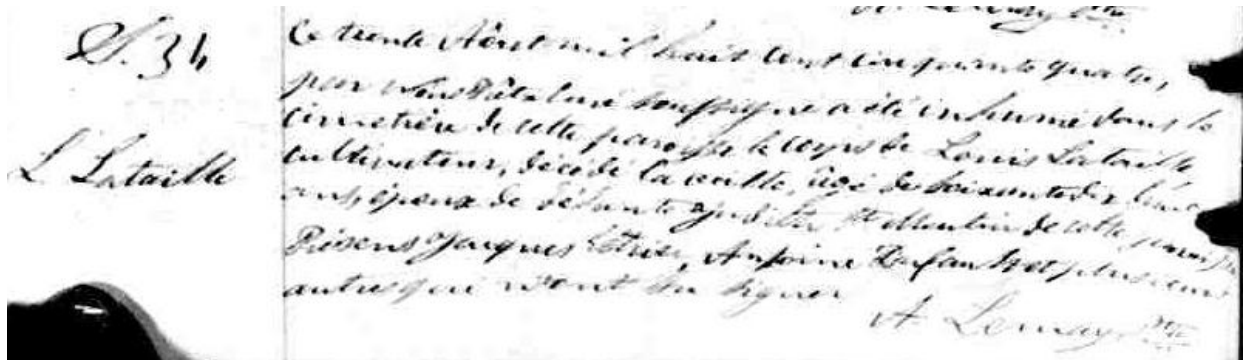 A. Lemay Ptre
S. 34
L. Lataille
Ce trente Août mil huit cent cinquante quatre,
par Nous Prêtre Curé soussigné a été inhumé dans le
cimetière de cette paroisse le corps de Louis Lataille
cultivateur, décédé la veille, âgé de soixante dix
ans, époux de défunte de cette paroisse
Présens Jacques Antoine et plusieurs
autres qui n'ont su signer
A. Lemay Ptre